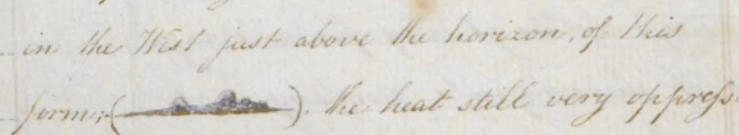 in the West just above the horizon, of this
form;( ). the heat still very oppress-